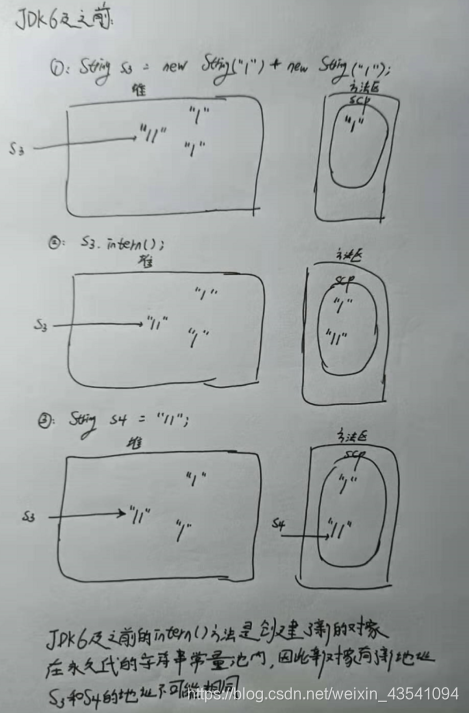 JDK6及之前:
①: String s3 = new String("1") + new String("1");
堆
方法区
scp
"1"
"1"
"11"
"1"
S3
②: S3.intern();
堆
方法区
scp
"1"
"1"
S3
"11"
"1"
"11"
③: String s4 = "11";
堆
方法区
scp
"1"
"1"
S3
"11"
"1"
S4
"11"
JDK6及之前的intern()方法是创建了新的对象
在永久代的字符串常量池内,因此新对象有新地址
S3和S4的地址不可能相同
https://blog.csdn.net/weixin_43541094